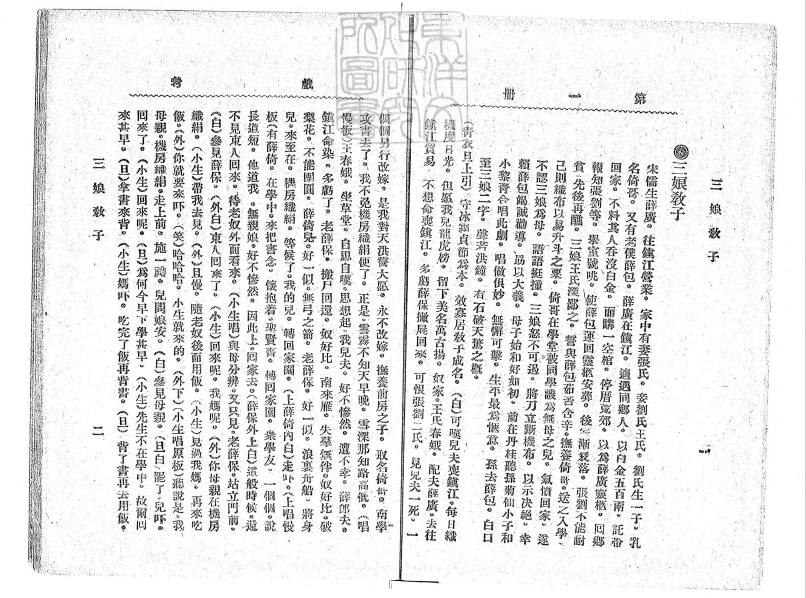 第一册
三娘教子
一
三娘教子
宋儒生薛廣。往鎮江營業。家中有妻張氏。妾劉氏王氏。劉氏生一子。乳
名倚哥。又有老僕薛包。薛廣在鎮江。適遇同鄉人。以白金五百兩。託帶
回家。不料其人吞沒白金。而購一空棺。停厝荒郊。以為薛廣靈柩。回鄉
報知張劉等。舉室號咷。使薛包運回靈柩安葬。後家漸衰落。張劉不能耐
貧。先後再醮。三娘王氏深鄙之。誓與薛包茹苦含辛。撫養倚哥。送之入學。
己則織布以易升斗之粟。倚哥在學堂被同學譏為無母之兒。氣憤回家。遂
不認三娘為母。語語挺撞。三娘怒不可遏。將刀立斷機布。以示決絕。幸
賴薛包竭誠勸導。勗以大義。母子始和好如初。前在丹桂聽孫菊仙小子和
小黎青合唱此劇。唱做俱妙。無懈可擊。生平最為愜意。孫去薛包。白口
至三娘二字。聲若洪鐘。有石破天驚之概。
(青衣旦上引)守冰霜貞節為本。效寡居教子成名。(白)可嘆兒夫喪鎮江。每日織
機度日光。但愿我兒龍虎榜。留下美名萬古揚。奴家王氏春娥。配夫薛廣。去往
鎮江貿易。不想命喪鎮江。多虧薛保搬屍回來。可恨張劉二氏。見兒夫一死。一
戲考
個個另行改嫁。是我對天洪誓大愿。永不改嫁。撫養前房之子。取名倚哥。南學
攻書去了。我不免機房織絹便了。正是。雲霧不知天早晚。雪深那知路高低。(唱
慢板)王春娥。坐草堂。自思自嘆。思想起。我兒夫。好不慘然。遭不幸。薛郎夫。
鎮江命染。多虧了。老薛保。搬尸回還。奴好比。南來雁。失羣無伴。奴好比。破
菱花。不能團圓。薛倚兒。好一似。無弓之箭。老薛保。好一似。浪裏舟船。將身
兒。來至在。機房織絹。等候了。我的兒。轉回家園。(上薛倚內白)走吓。(上唱慢
板)有薛倚。在學中。來把書念。懷抱着。聖賢書。轉回家園。衆學友。一個個。說
長道短。他道我。無親娘。好不慘然。因此上。回家去。(薛保外上白)這般時候。還
不見東人回來。待老奴外面看來。(小生唱)與母分辨。又只見。老薛保。站立門前。
(白)參見薛保。(外白)東人回來了。(小生)回來呢。我媽呢。(外)你母親在機房
織絹。(小生)帶我去見。(外)且慢。隨老奴後面用飯。(小生)見過我媽。再來吃
飯。(外)你就要來吓。(笑)哈哈哈。小生就來的。(外下)(小生唱原板)聽說是。我
母親。機房織絹。走上前。施一禮。兒問娘安。(白)參見母親。(旦白)罷了。兒吓。
回來了。(小生)回來呢。(旦)為何今早下學甚早。(小生)先生不在學中。故爾回
來甚早。(旦)拿書來背。(小生)媽吓。吃完了飯再背書。(旦)背了書再去用飯。
三娘教子
二